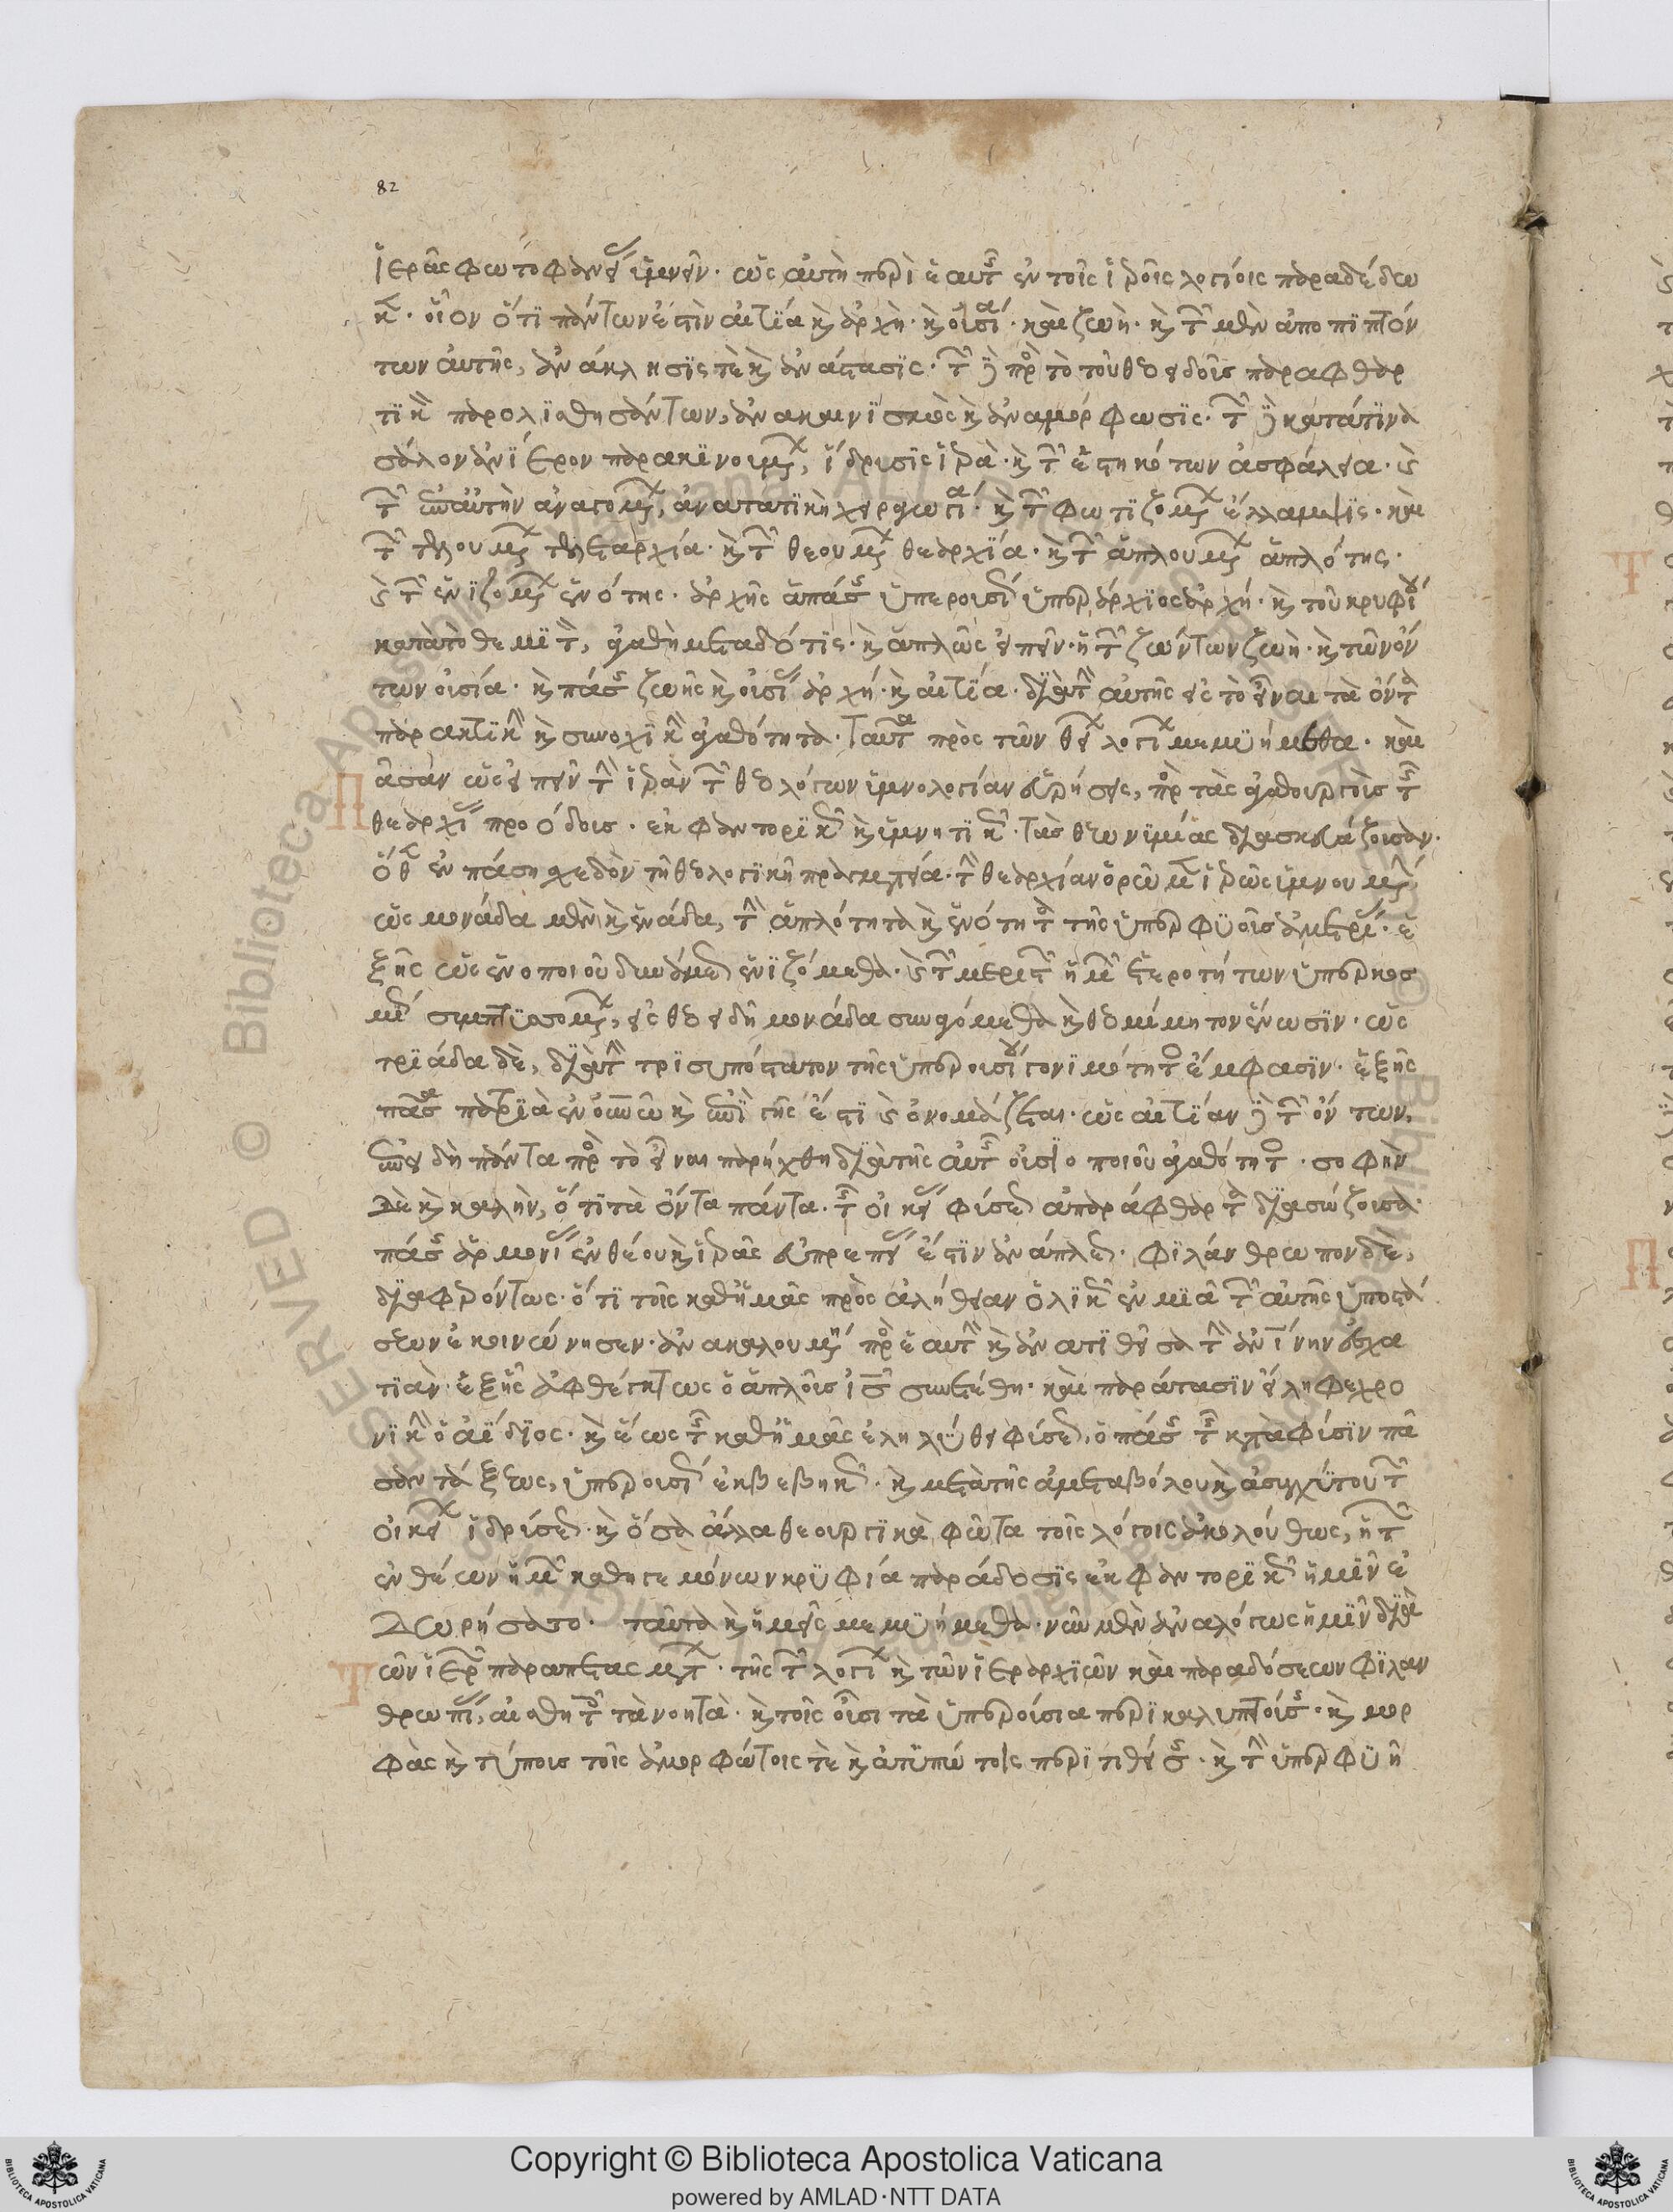 82
ἱερᾶς φωτοφανείας ὑμνεῖν· ὡς αὐτὴ περὶ ἑαυτῆς ἐν τοῖς ἱεροῖς λογίοις παραδέδω
κεν· οἷον ὅτι πάντων ἐστὶν αἰτία καὶ ἀρχὴ· καὶ οὐσία· καὶ ζωὴ· καὶ τῶν μὲν ἀποπιπτόν
των αὐτῆς, ἀνάκλησίς τε καὶ ἀνάστασις· τῶν δὲ πρὸς τὸ τοῦ θεοειδοῦς παραφθαρ
τικὸν παρολισθησάντων, ἀνακαινισμὸς καὶ ἀναμόρφωσις· τῶν δὲ κατά τινα
σάλον ἀνίερον παρακινουμένων, ἵδρυσις ἱερὰ· καὶ τῶν ἑστηκότων ἀσφάλεια· καὶ
τῶν ἐπ' αὐτὴν ἀναγομένων, ἀνατατικὴ χειραγωγία· καὶ τῶν φωτιζομένων ἔλλαμψις· καὶ
τῶν τελουμένων τελεταρχία· καὶ τῶν θεουμένων θεαρχία· καὶ τῶν ἁπλουμένων ἁπλότης·
καὶ τῶν ἑνιζομένων ἑνότης· ἀρχῆς ἁπάσης ὑπερουσίως ὑπεράρχιος ἀρχή· καὶ τοῦ κρυφίου
κατὰ τὸ θεμιτὸν, ἀγαθὴ μεταδότις· καὶ ἁπλῶς εἰπεῖν· ἡ τῶν ζώντων ζωὴ· καὶ τῶν ὄν
των οὐσία· καὶ πάσης ζωῆς καὶ οὐσίας ἀρχή· καὶ αἰτία· διὰ τὴν αὐτῆς εἰς τὸ εἶναι τὰ ὄντα
παρακτικὴν καὶ συνοχικὴν ἀγαθότητα· ταῦτα πρὸς τῶν θείων λογίων μεμυήμεθα· καὶ
πᾶσαν ὡς εἰπεῖν τὴν ἱερὰν τῶν θεολόγων ὑμνολογίαν εὑρήσεις, πρὸς τὰς ἀγαθουργοὺς τῆς
θεαρχίας προόδους· ἐκφαντορικῶς καὶ ὑμνητικῶς· τὰς θεωνυμίας διασκευάζουσαν·
ὅθεν ἐν πάσῃ σχεδὸν τῇ θεολογικῇ πραγματείᾳ· τὴν θεαρχίαν ὁρῶμεν ἱερῶς ὑμνουμένην,
ὡς μονάδα μὲν καὶ ἑνάδα, τὴν ἁπλότητα καὶ ἑνότητα τῆς ὑπερφυοῦς ἀμερείας· ἐ
ξ ἧς ὡς ἑνοποιοῦ δυνάμεως ἑνιζόμεθα· καὶ τῶν μεριστῶν ἡμῶν ἑτεροτήτων ὑπερκοσ
μίως συμπτυσσομένων, εἰς θεοειδῆ μονάδα συναγόμεθα καὶ θεομίμητον ἕνωσιν· ὡς
τριάδα δὲ, διὰ τὴν τρισυπόστατον τῆς ὑπερουσίου γονιμότητος ἔμφασιν· ἐξ ἧς
πᾶσα πατριὰ ἐν οὐρανῷ καὶ ἐπὶ γῆς ἐστὶ καὶ ὀνομάζεται· ὡς αἰτίαν δὲ τῶν ὄντων,
ἐπειδὴ πάντα πρὸς τὸ εἶναι παρήχθη διὰ τῆς αὐτῆς οὐσιοποιοῦ ἀγαθότητος· σοφὴν
δὲ καὶ καλὴν, ὅτι τὰ ὄντα πάντα· τῆς οἰκείας φύσεως ἀπαράφθαρτα διασώζουσα·
πάσης ἁρμονίας ἐνθέου καὶ ἱερᾶς εὐπρεπείας ἐστὶν ἀνάπλεως· φιλάνθρωπον δὲ,
διαφερόντως· ὅτι τοῖς καθ' ἡμᾶς πρὸς ἀλήθειαν ὁλικῶς ἐν μιᾷ τῶν αὐτῆς ὑποστά
σεων ἐκοινώνησεν· ἀνακαλουμένη πρὸς ἑαυτὴν καὶ ἀνατιθεῖσα τὴν ἀνθρωπίνην ἐσχα
τιὰν· ἐξ ἧς ἀφθέγκτως ὁ ἁπλοῦς Ἰησοῦς συνετέθη· καὶ παράτασιν εἴληφε χρο
νικὴν ὁ ἀΐδιος· καὶ ἔσω τῆς καθ' ἡμᾶς ἐληλύθει φύσεως, ὁ πάσης τῆς κατὰ φύσιν πᾶ
σαν τάξεως, ὑπερουσίως ἐκβεβηκὼς· καὶ μετὰ τῆς ἀμεταβόλου καὶ ἀσυγχύτου τῶν
οἰκείων ἱδρύσεως· καὶ ὅσα ἄλλα θεουργικὰ φῶτα τοῖς λόγοις ἀκολούθως, ἡ τῶν
ἐνθέων ἡμῶν καθηγεμόνων κρυφία παράδοσις ἐκφαντορικῶς ἡμῖν ἐ
δωρήσατο· ταῦτα καὶ ἡμεῖς μεμυήμεθα· νῦν μὲν ἀναλόγως ἡμῖν διὰ
τῶν ἱερῶν παραπετασμάτων· τῆς τῶν λογίων καὶ τῶν ἱεραρχικῶν καὶ παραδόσεων φιλαν
θρωπίας, αἰσθητοῖς τὰ νοητὰ· καὶ τοῖς οὖσι τὰ ὑπερούσια περικαλυπτούσης· καὶ μορ
φὰς καὶ τύπους τοῖς ἀμορφώτοις τὲ καὶ ἀτυπώτοις περιτιθείσης· καὶ τὴν ὑπερφυῆ
Copyright © Biblioteca Apostolica Vaticana
powered by AMLAD·NTT DATA